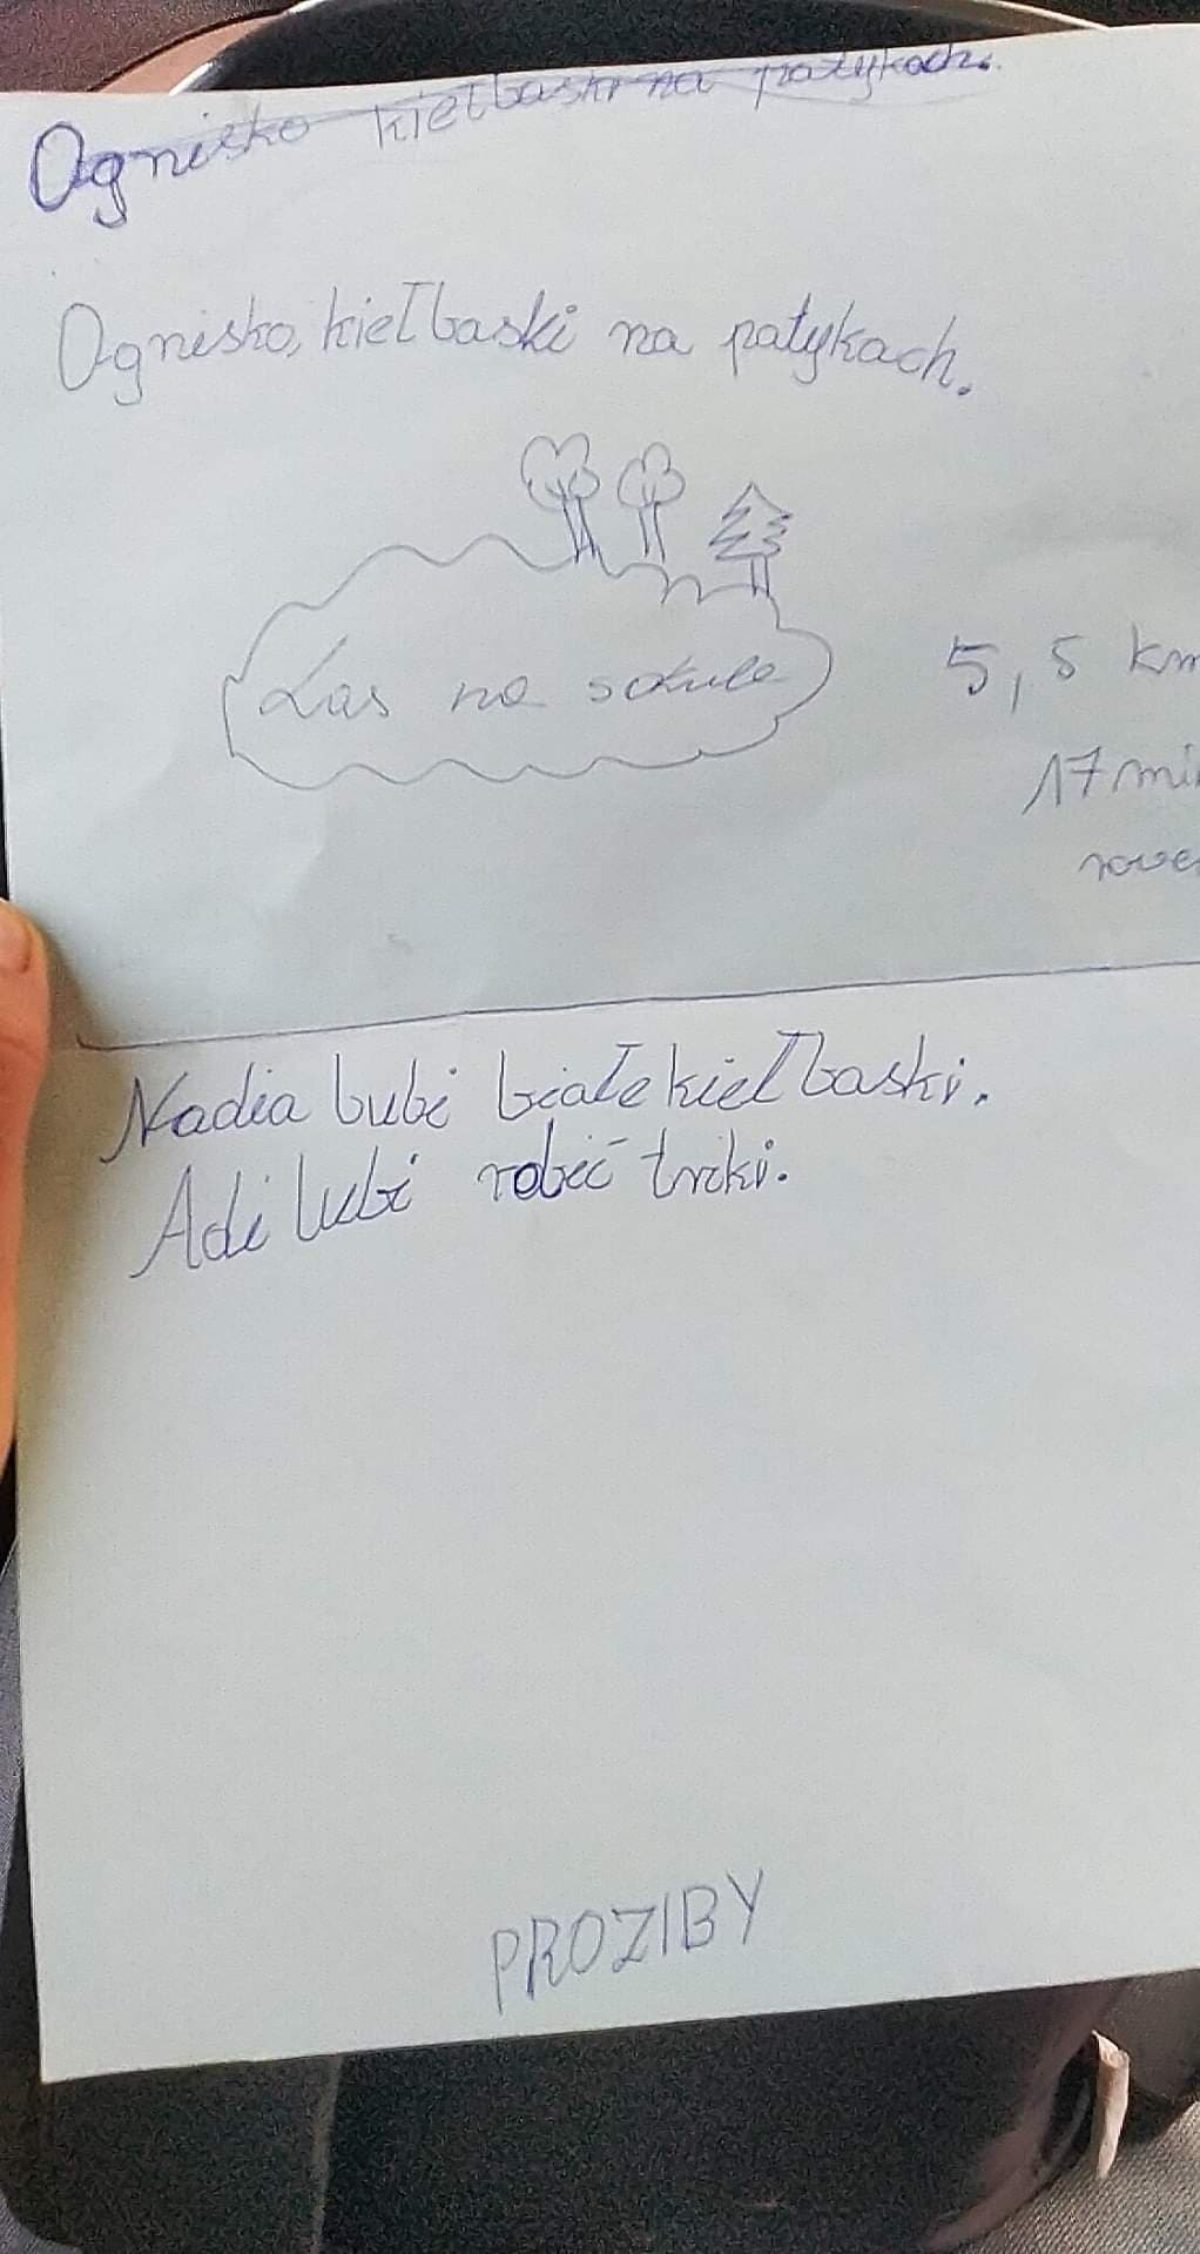 Ognisko kiełbaski na patykach.
Ognisko, kiełbaski na patykach.
Las na sokule
5,5 km
17 min
rower
Nadia lubi białe kiełbaski.
Adi lubi robić triki.
PROZIBY